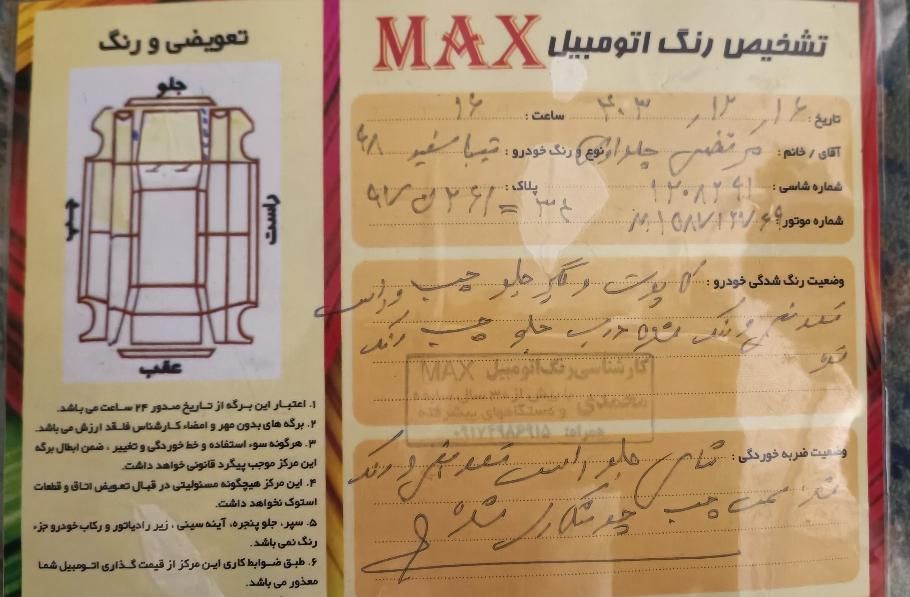 تشخیص رنگ اتومبیل MAX
تاریخ: ۱۶ / ۱۲ / ۴۰۳ ساعت: ۱۶
آقای / خانم: مرتضی نوع و رنگ خودرو: تیبا سفید ۹۸
شماره شاسی: پلاک:
شماره موتور:
وضعیت رنگ شدگی خودرو: کاپوت و گلگیر جلو چپ و راست
تعویض و رنگ شده درب جلو چپ رنگ
شده
کارشناسی رنگ اتومبیل MAX
محمدی با بیش از ۳۰ سال سابقه
و دستگاههای پیشرفته
همراه:
وضعیت ضربه خوردگی: شاسی جلو راست تعویض و رنگ
شد سمت چپ جوشکاری شده
تعویضی و رنگ
جلو
چپ
راست
عقب
۱. اعتبار این برگه از تاریخ صدور ۲۴ ساعت می باشد.
۲. برگه های بدون مهر و امضاء کارشناس فاقد ارزش می باشد.
۳. هرگونه سوء استفاده و خط خوردگی و تغییر ، ضمن ابطال برگه
این مرکز موجب پیگرد قانونی خواهد داشت.
۴. این مرکز هیچگونه مسئولیتی در قبال تعویض اتاق و قطعات
استوک نخواهد داشت.
۵. سپر، جلو پنجره، آینه سینی ، زیر رادیاتور و رکاب خودرو جزء
رنگ نمی باشد.
۶. طبق ضوابط کاری این مرکز از قیمت گذاری اتومبیل شما
معذور می باشد.